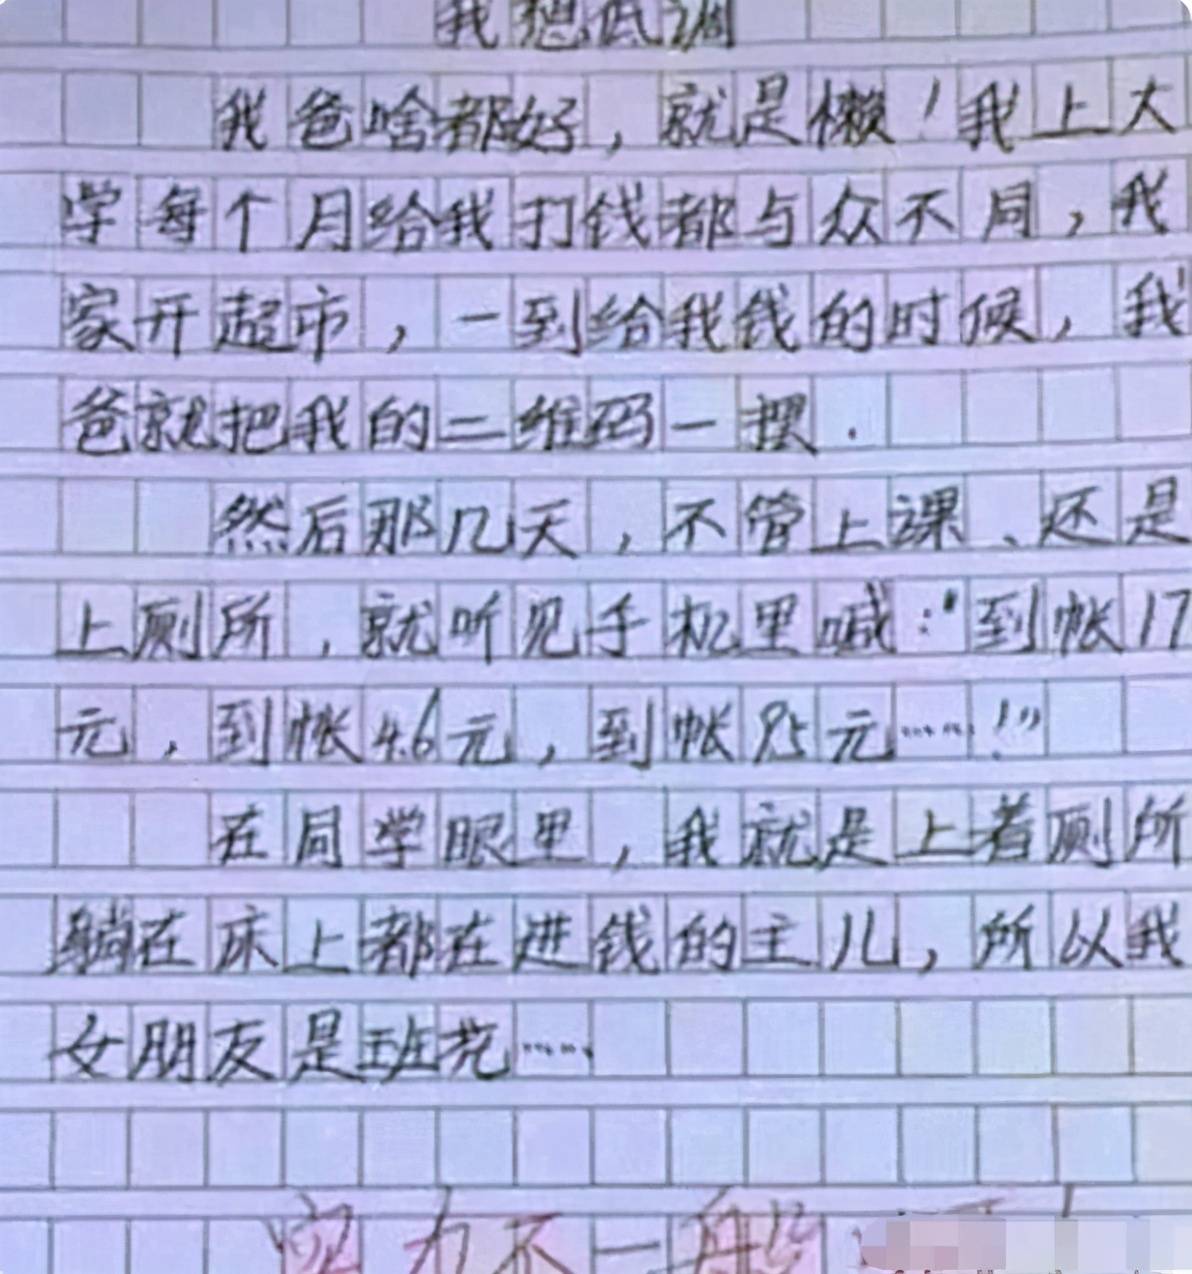 我想低调
我爸啥都好，就是懒！我上大
学每个月给我打钱都与众不同，我
家开超市，一到给我钱的时候，我
爸就把我的二维码一摆．
然后那几天，不管上课、还是
上厕所，就听见手机里喊：“到帐17
元，到帐4.6元，到帐95元……！”
在同学眼里，我就是上着厕所
躺在床上都在进钱的主儿，所以我
女朋友是班花……
实力不一般